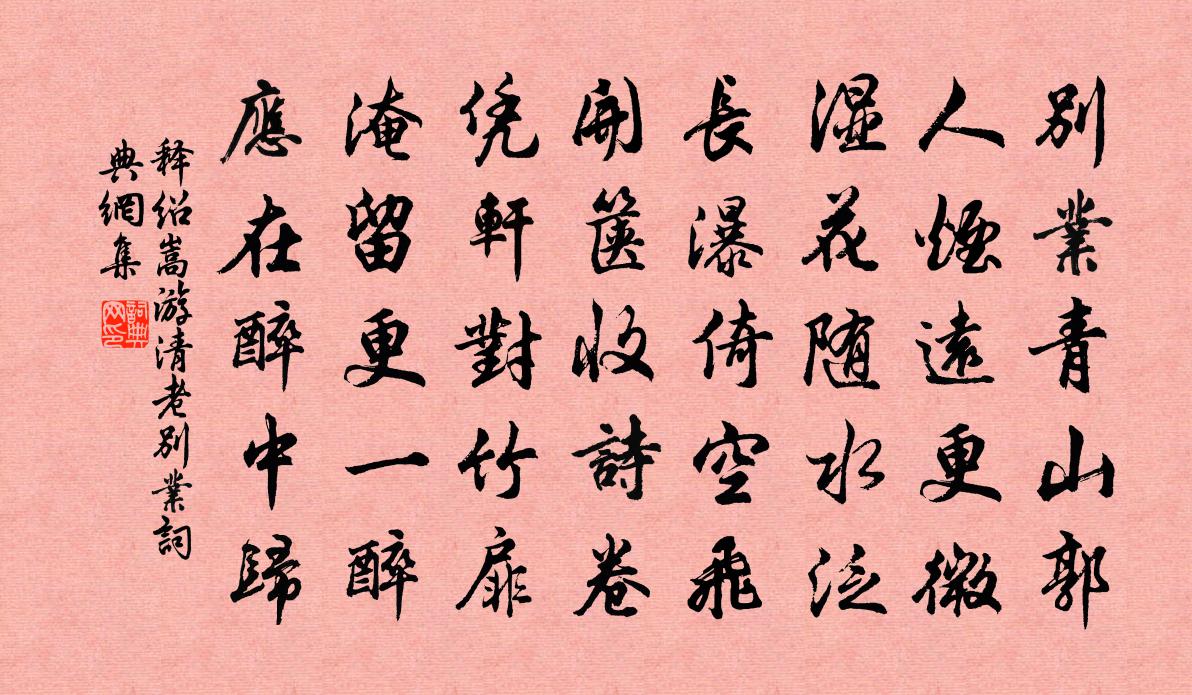 別業青山郭
人煙遠更微
湿花随水泛
長瀑倚空飛
開篋收詩卷
凭軒對竹扉
淹留更一醉
應在醉中歸
释绍嵩游清老别業詞
典網集
詞典网印